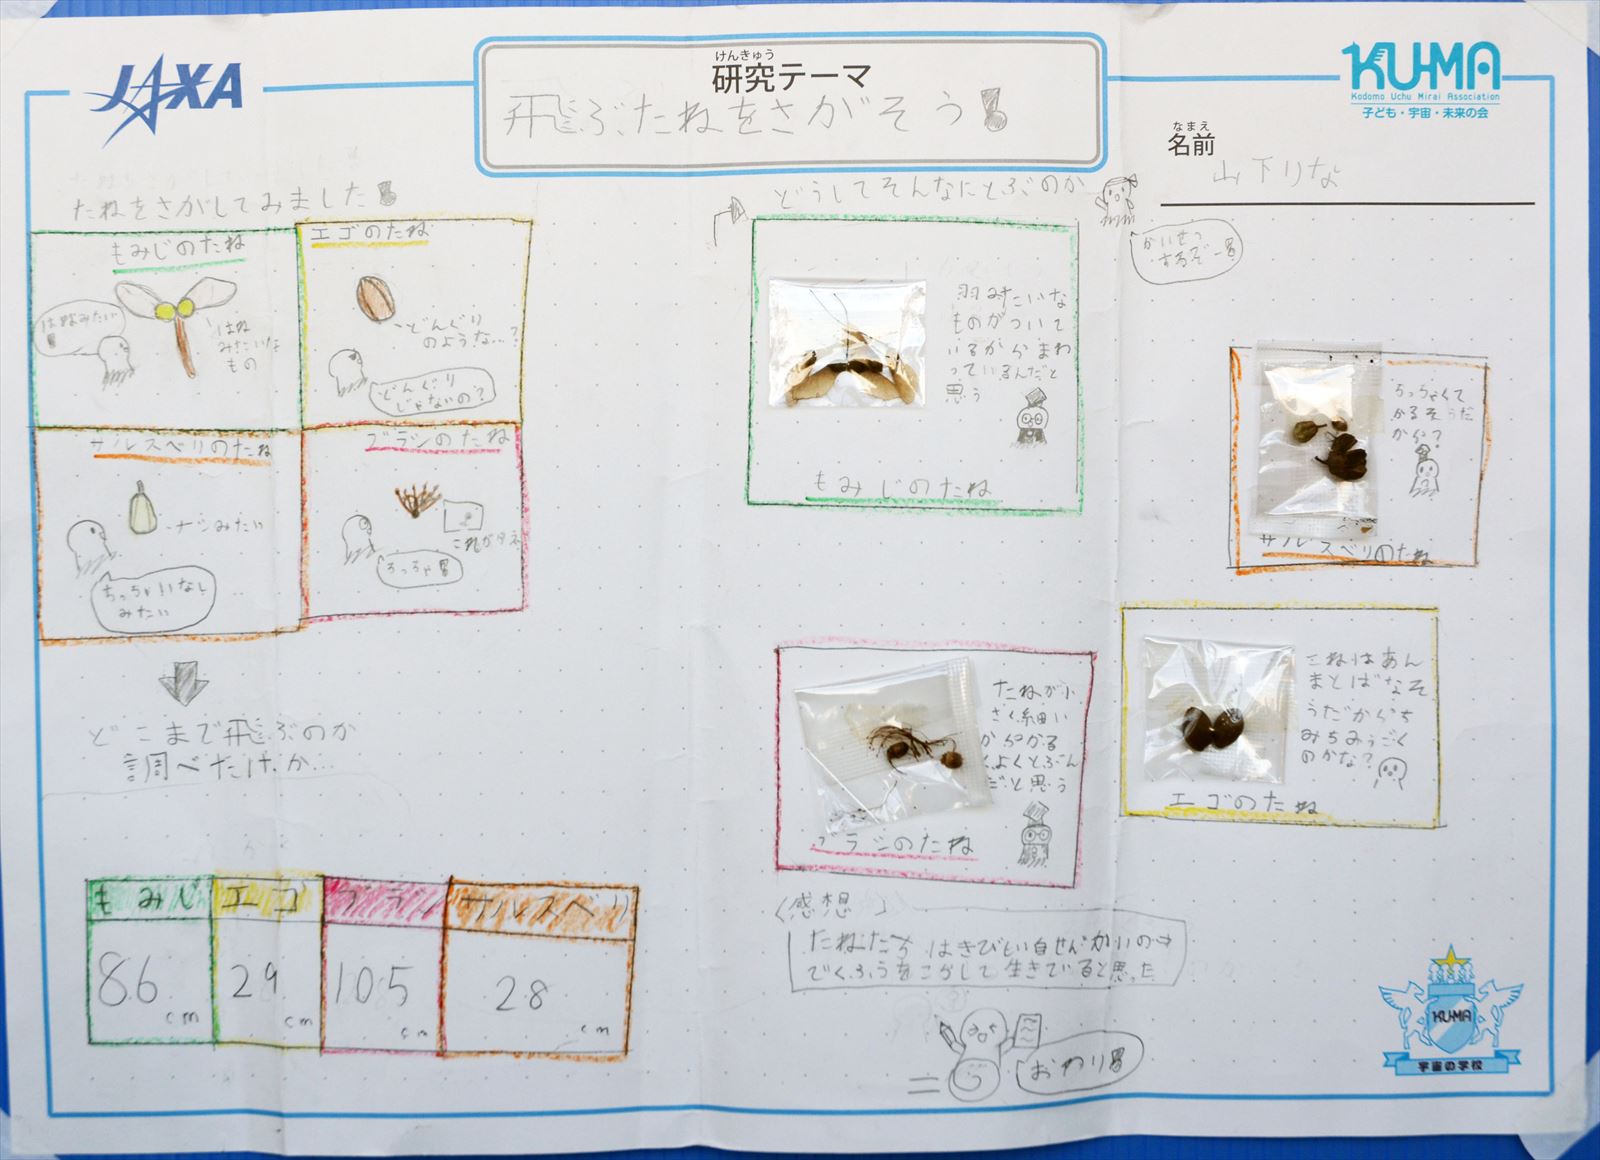 JAXA
けんきゅう
研究テーマ
飛ぶたねをさがそう!
KU-MA
Kodomo Uchu Mirai Association
子ども・宇宙・未来の会
なまえ
名前
山下りな
たねをさがしてみました!
もみじのたね
はねみたい!
はね
みたいな
もの
エゴのたね
どんぐり
のような…?
どんぐり
じゃないの?
サルスベリのたね
ナシみたい
ちっちゃいなし
みたい
ブラシのたね
これがタネ
ちっちゃ!
どこまで飛ぶのか
調べたけっか…
もみじ
エゴ
ブラシ
サルスベリ
86
cm
29
cm
105
cm
28
cm
どうしてそんなにとぶのか
かいせつ
するぞー!
羽みたいな
ものがついて
いるからまわ
っているんだと
思う
もみじのたね
ちっちゃくて
かるそうだ
から?
サルスベリのたね
たねが小
さく細い
からかる
くよくとぶん
だと思う
ブラシのたね
たねはあん
まとばなそ
うだからち
みちみうごく
のかな?
エゴのたね
〈感想〉
たねたちはきびしい自せんかいの中
でくふうをこらして生きていると思った
おわり!
KU-MA
宇宙の学校